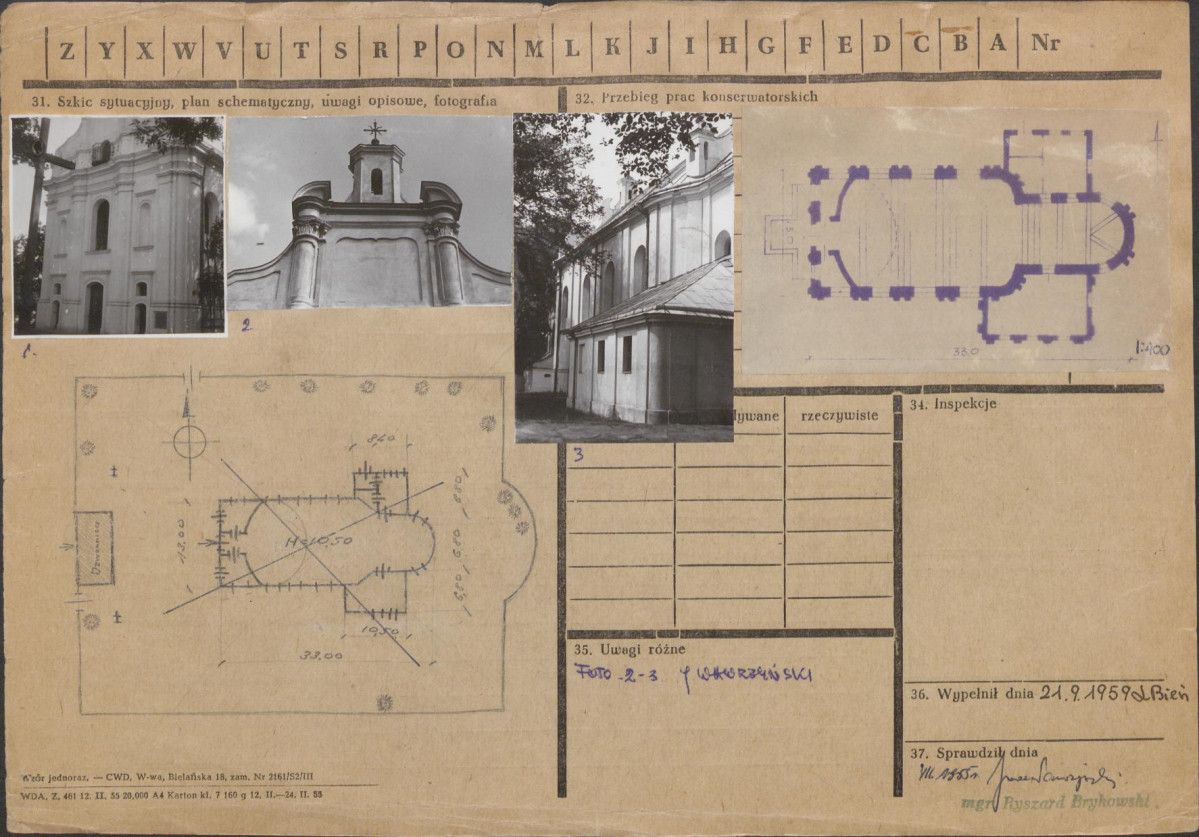 Z Y X W V U T S R P O N M L K J I H G F E D C B A Nr
31. Szkic sytuacyjny, plan schematyczny, uwagi opisowe, fotografia
32. Przebieg prac konserwatorskich
1.
2
3
33.0
1:400
8,40
13,00
H=10,50
6,80
6,80
10,50
33,00
Dzwonnica
ływane
rzeczywiste
34. Inspekcje
35. Uwagi różne
FOTO 2-3 J WAWRZYŃSKI
36. Wypełnił dnia 21.9.1959 Bień
37. Sprawdził dnia
mgr Ryszard Brykowski
Wzór jednoraz. — CWD, W-wa, Bielańska 18, zam. Nr 2161/S2/III
WDA. Z. 461 12. II. 55 20,000 A4 Karton kl. 7 160 g 12. II.—24. II. 55